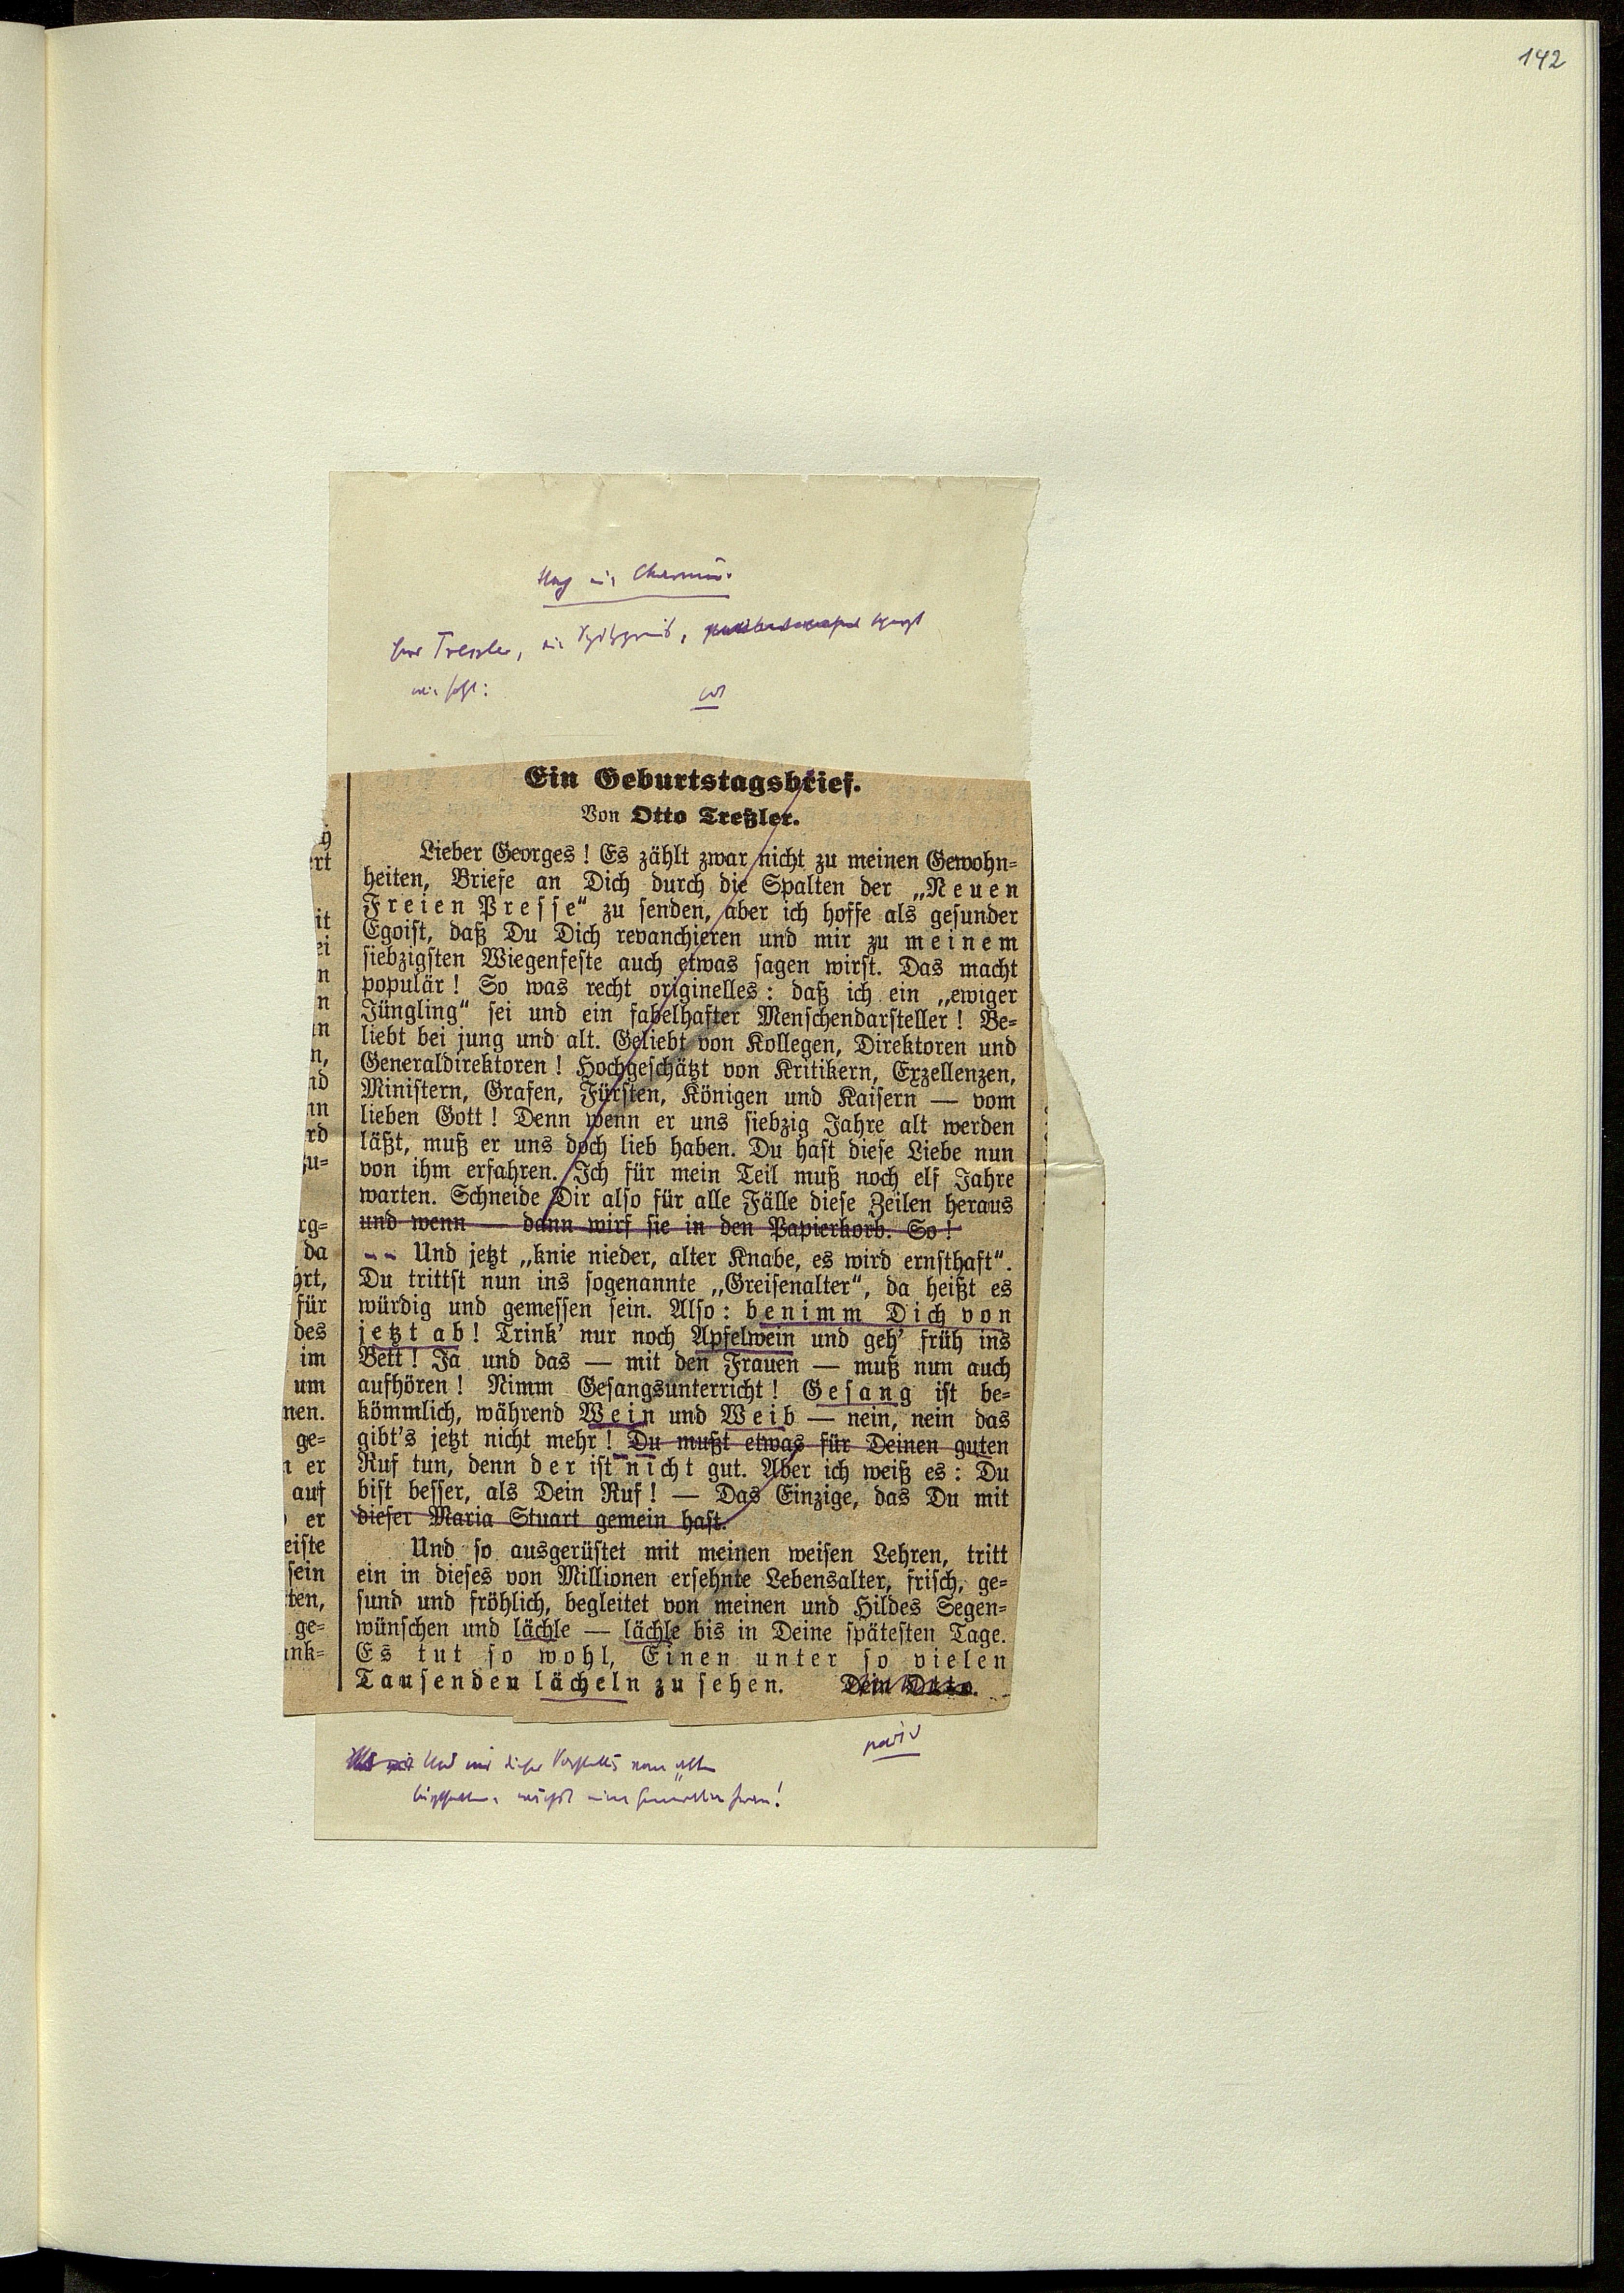 142
Ein Geburtstagsbrief.
Von Otto Treßler.
Lieber Georges! Es zählt zwar nicht zu meinen Gewohn-
heiten, Briefe an Dich durch die Spalten der „Neuen
Freien Presse“ zu senden, aber ich hoffe als gesunder
Egoist, daß Du Dich revanchieren und mir zu meinem
siebzigsten Wiegenfeste auch etwas sagen wirst. Das macht
populär! So was recht originelles: daß ich ein „ewiger
Jüngling“ sei und ein fabelhafter Menschendarsteller! Be-
liebt bei jung und alt. Geliebt von Kollegen, Direktoren und
Generaldirektoren! Hochgeschätzt von Kritikern, Exzellenzen,
Ministern, Grafen, Fürsten, Königen und Kaisern — vom
lieben Gott! Denn wenn er uns siebzig Jahre alt werden
läßt, muß er uns doch lieb haben. Du hast diese Liebe nun
von ihm erfahren. Ich für mein Teil muß noch elf Jahre
warten. Schneide Dir also für alle Fälle diese Zeilen heraus
und wenn — dann wirf sie in den Papierkorb. So!
-- Und jetzt „knie nieder, alter Knabe, es wird ernsthaft“.
Du trittst nun ins sogenannte „Greisenalter“, da heißt es
würdig und gemessen sein. Also: benimm Dich von
jetzt ab! Trink' nur noch Apfelwein und geh' früh ins
Bett! Ja und das — mit den Frauen — muß nun auch
aufhören! Nimm Gesangsunterricht! Gesang ist be-
kömmlich, während Wein und Weib — nein, nein das
gibt's jetzt nicht mehr! Du mußt etwas für Deinen guten
Ruf tun, denn der ist nicht gut. Aber ich weiß es: Du
bist besser, als Dein Ruf! — Das Einzige, das Du mit
dieser Maria Stuart gemein hast.
Und so ausgerüstet mit meinen weisen Lehren, tritt
ein in dieses von Millionen ersehnte Lebensalter, frisch, ge-
sund und fröhlich, begleitet von meinen und Hildes Segen-
wünschen und lächle — lächle bis in Deine spätesten Tage.
Es tut so wohl, Einen unter so vielen
Tausenden lächeln zu sehen. Dein Otto.